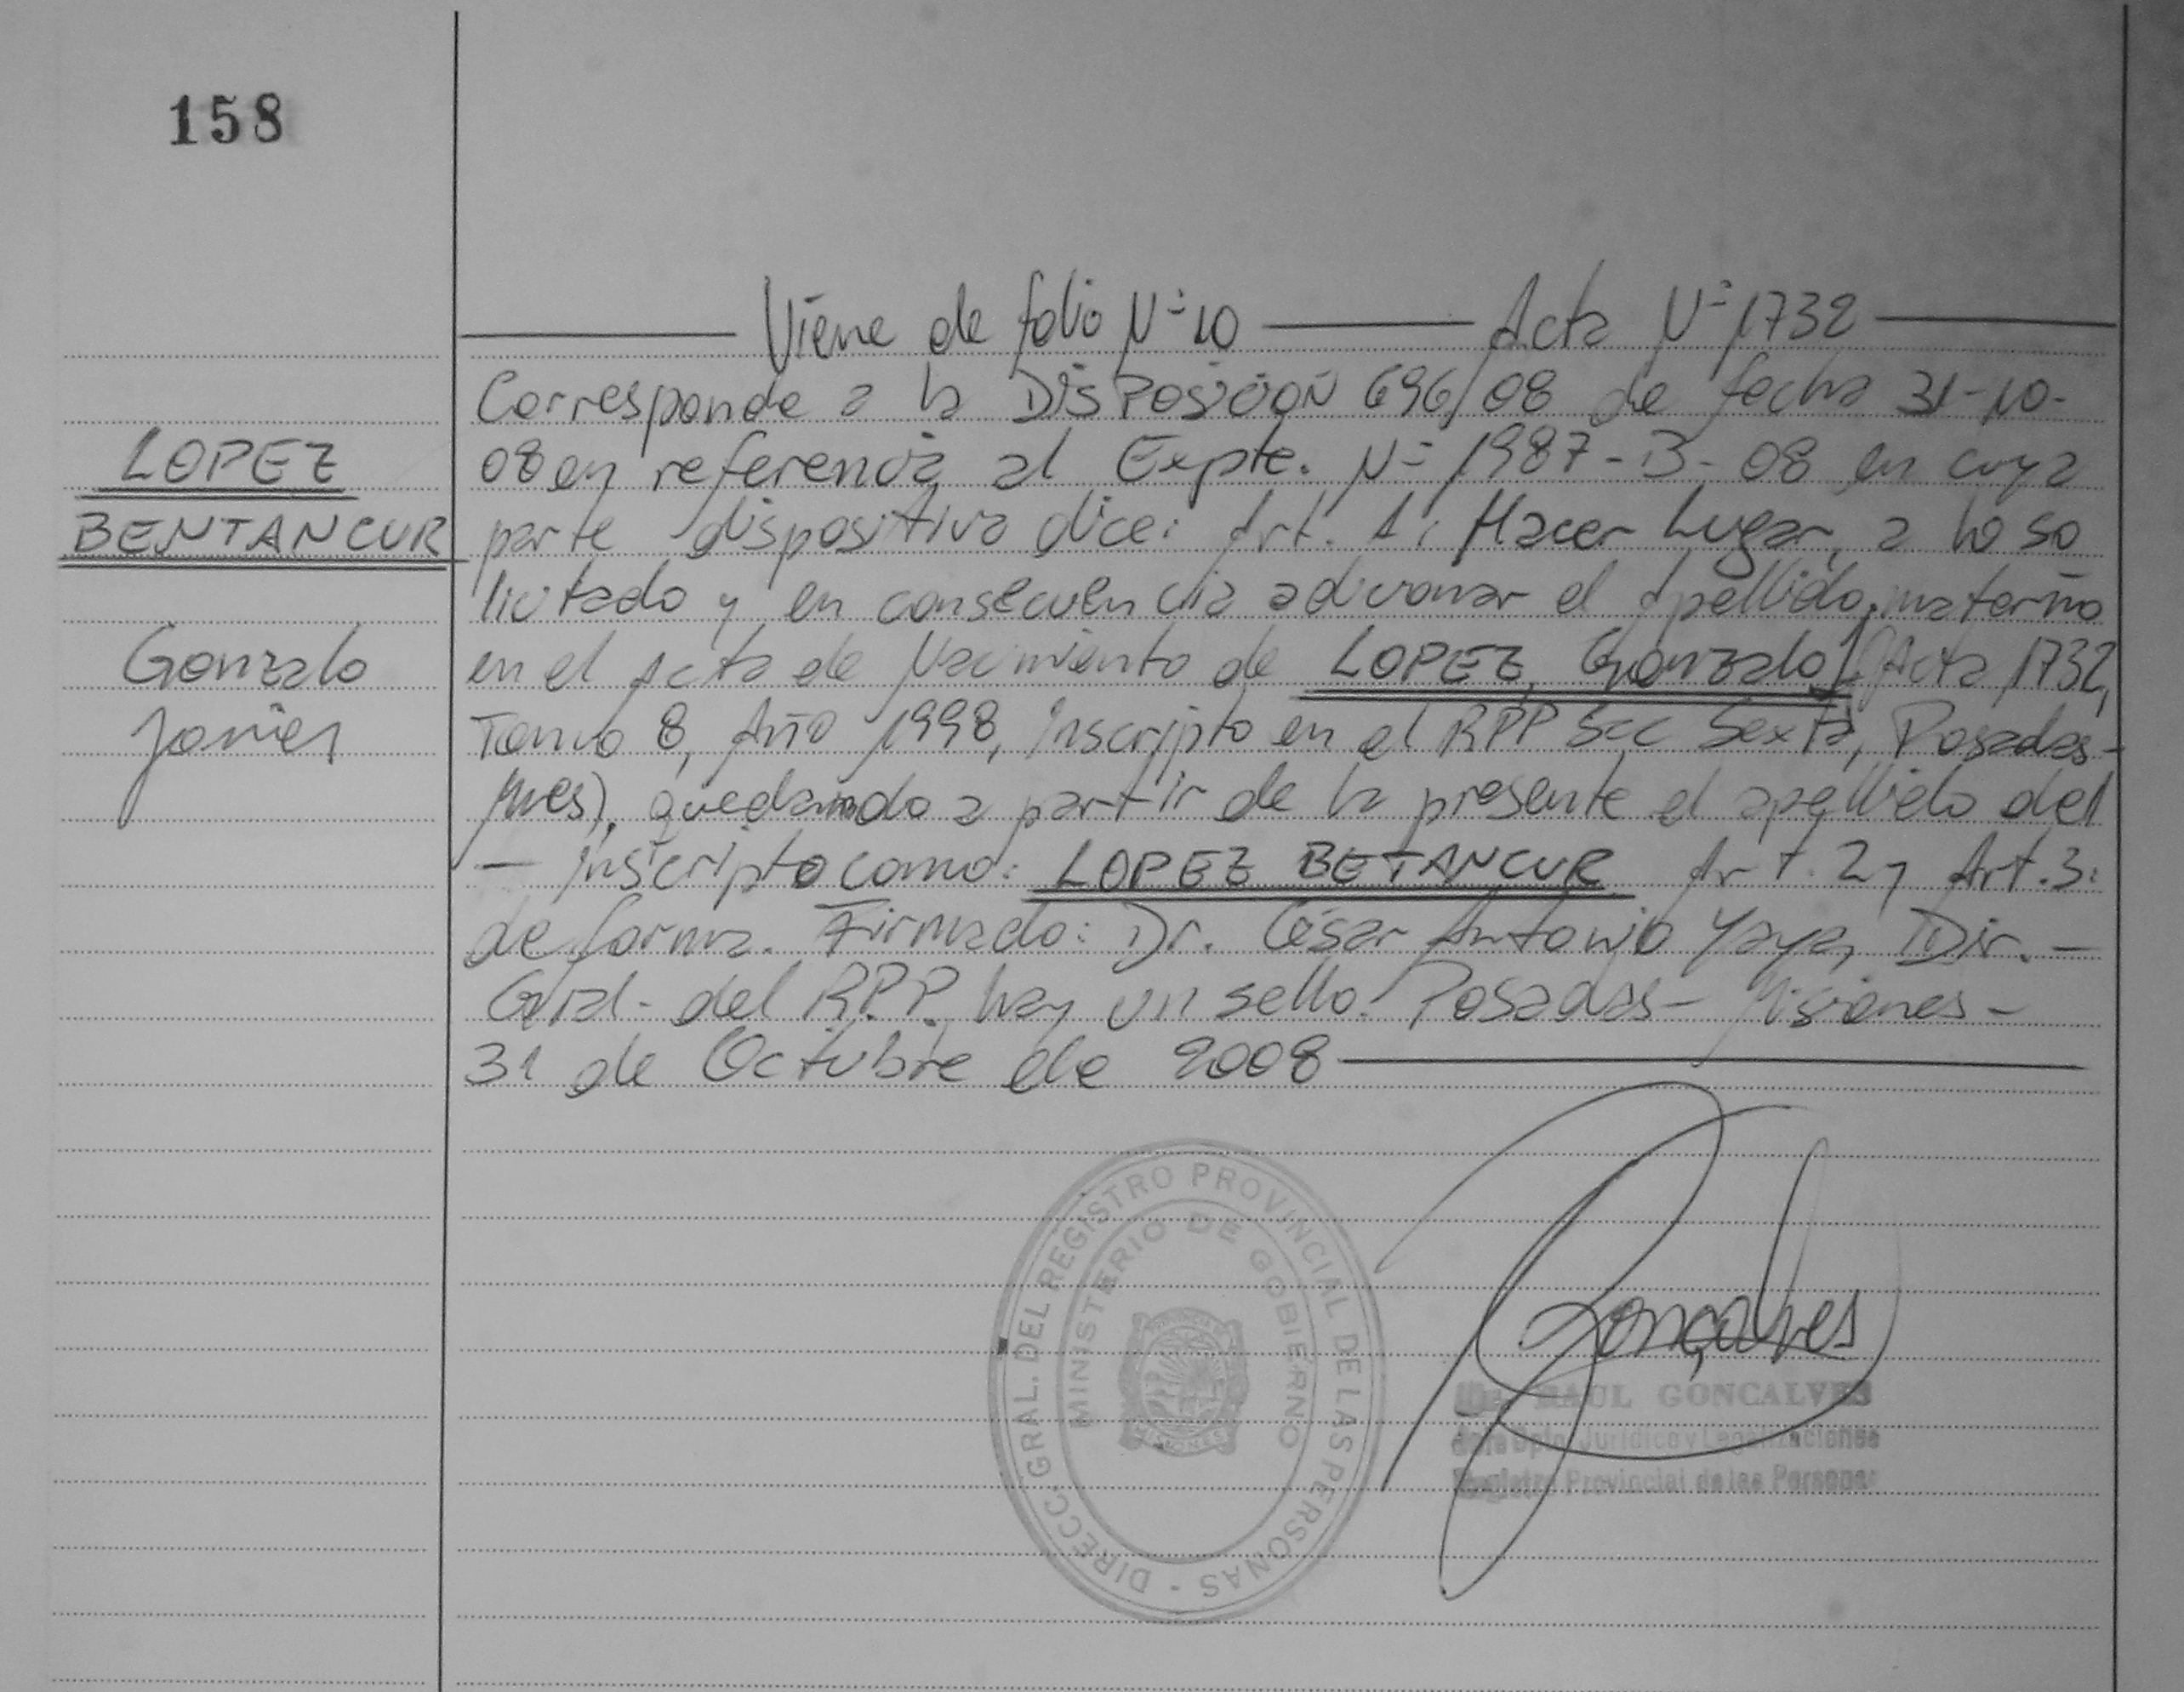 158
Viene de folio Nº 10 — Acta Nº 1732
LOPEZ
BENTANCUR
Gonzalo
Javier
Corresponde a la DISPOSICIÓN 696/08 de fecha 31-10-
08 en referencia al Expte. Nº 1987-B-08 en cuya
parte dispositiva dice: Art. 1: Hacer Lugar, a lo so
licitado y en consecuencia adicionar el Apellido materno
en el Acta de Nacimiento de LOPEZ, Gonzalo J. (Acta 1732,
Tomo 8, Año 1998, Inscripto en el RPP Scc Sexta, Posadas-
Mnes), quedando a partir de la presente el apellido del
— inscripto como: LOPEZ BETANCUR Art. 2 y Art. 3:
de forma. Firmado: Dr. César Antonio Yaya, Dir. —
Gral- del R.P.P. hay un sello. Posadas- Misiones-
31 de Octubre de 2008
DIRECC. GRAL. DEL REGISTRO PROVINCIAL DE LAS PERSONAS -
MINISTERIO DE GOBIERNO
MISIONES
Gonçalves
RAUL GONCALVES
Jefe Dpto. Jurídico y Legalizaciones
Registro Provincial de las Personas